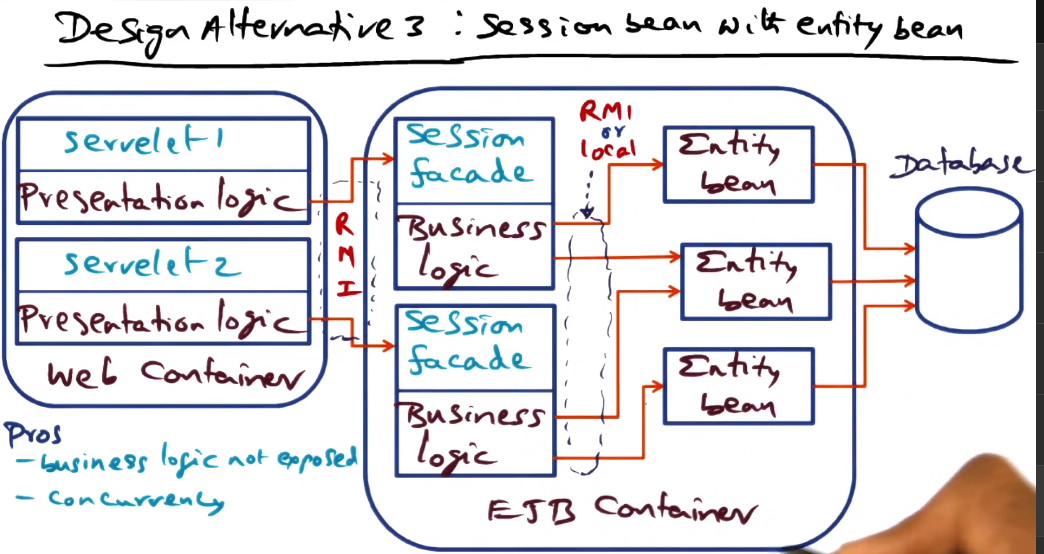 Design Alternative 3 : Session bean with entity bean
servelet 1
Presentation logic
servelet 2
Presentation logic
Web Container
RMI
Session
facade
Business
logic
Session
facade
Business
logic
RMI
or
local
Entity
bean
Entity
bean
Entity
bean
EJB Container
Database
Pros
- business logic not exposed
- Concurrency